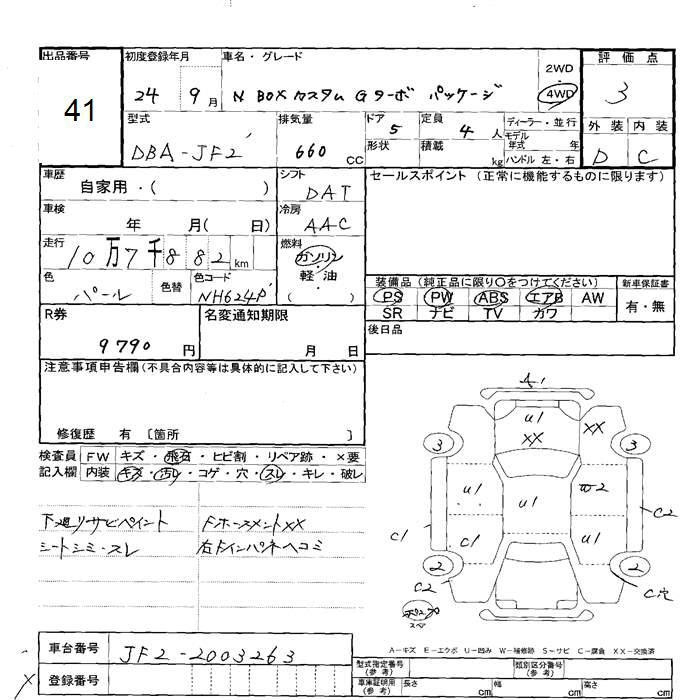 出品番号
41
初度登録年月
24 9月
車名・グレード
N BOX カスタム Gターボ パッケージ
2WD
4WD
評価点
3
外装 内装
D C
型式
DBA-JF2
排気量
660 CC
ドア 5
定員 4 人
形状
積載 kg
ディーラー・並行
モデル
年式 年
ハンドル 左・右
車歴
自家用・( )
シフト
DAT
車検
年 月( 日)
冷房
AAC
走行
10万7千882 km
燃料
ガソリン
・
軽油
( )
色
パール
色替
色コード
NH624P
セールスポイント (正常に機能するものに限ります)
装備品 (純正品に限り○をつけてください)
PS PW ABS エアB AW
SR ナビ TV カワ
新車保証書
有・無
後日品
R券
9790 円
名変通知期限
月 日
注意事項申告欄(不具合内容等は具体的に記入して下さい)
修復歴 有 〔箇所 〕
検査員 FW キズ・飛石・ヒビ割・リペア跡・×要
記入欄 内装 キズ・汚レ・コゲ・穴・スレ・キレ・破レ
下廻リサビペイント
シートシミ・スレ
FホースメントXX
右Fインパネヘコミ
A1
U1
XX
XX
3
3
U1
U1
W2
C1
C1
U1
C2
2
2
C2
C穴
スペ
A-キズ E-エクボ U-凹み W-補修跡 S-サビ C-腐食 XX-交換済
車台番号
JF2-2003263
登録番号
X
型式指定番号
(参考)
類別区分番号
(参考)
車庫証明用
(参考)
長さ cm
幅 cm
高さ cm